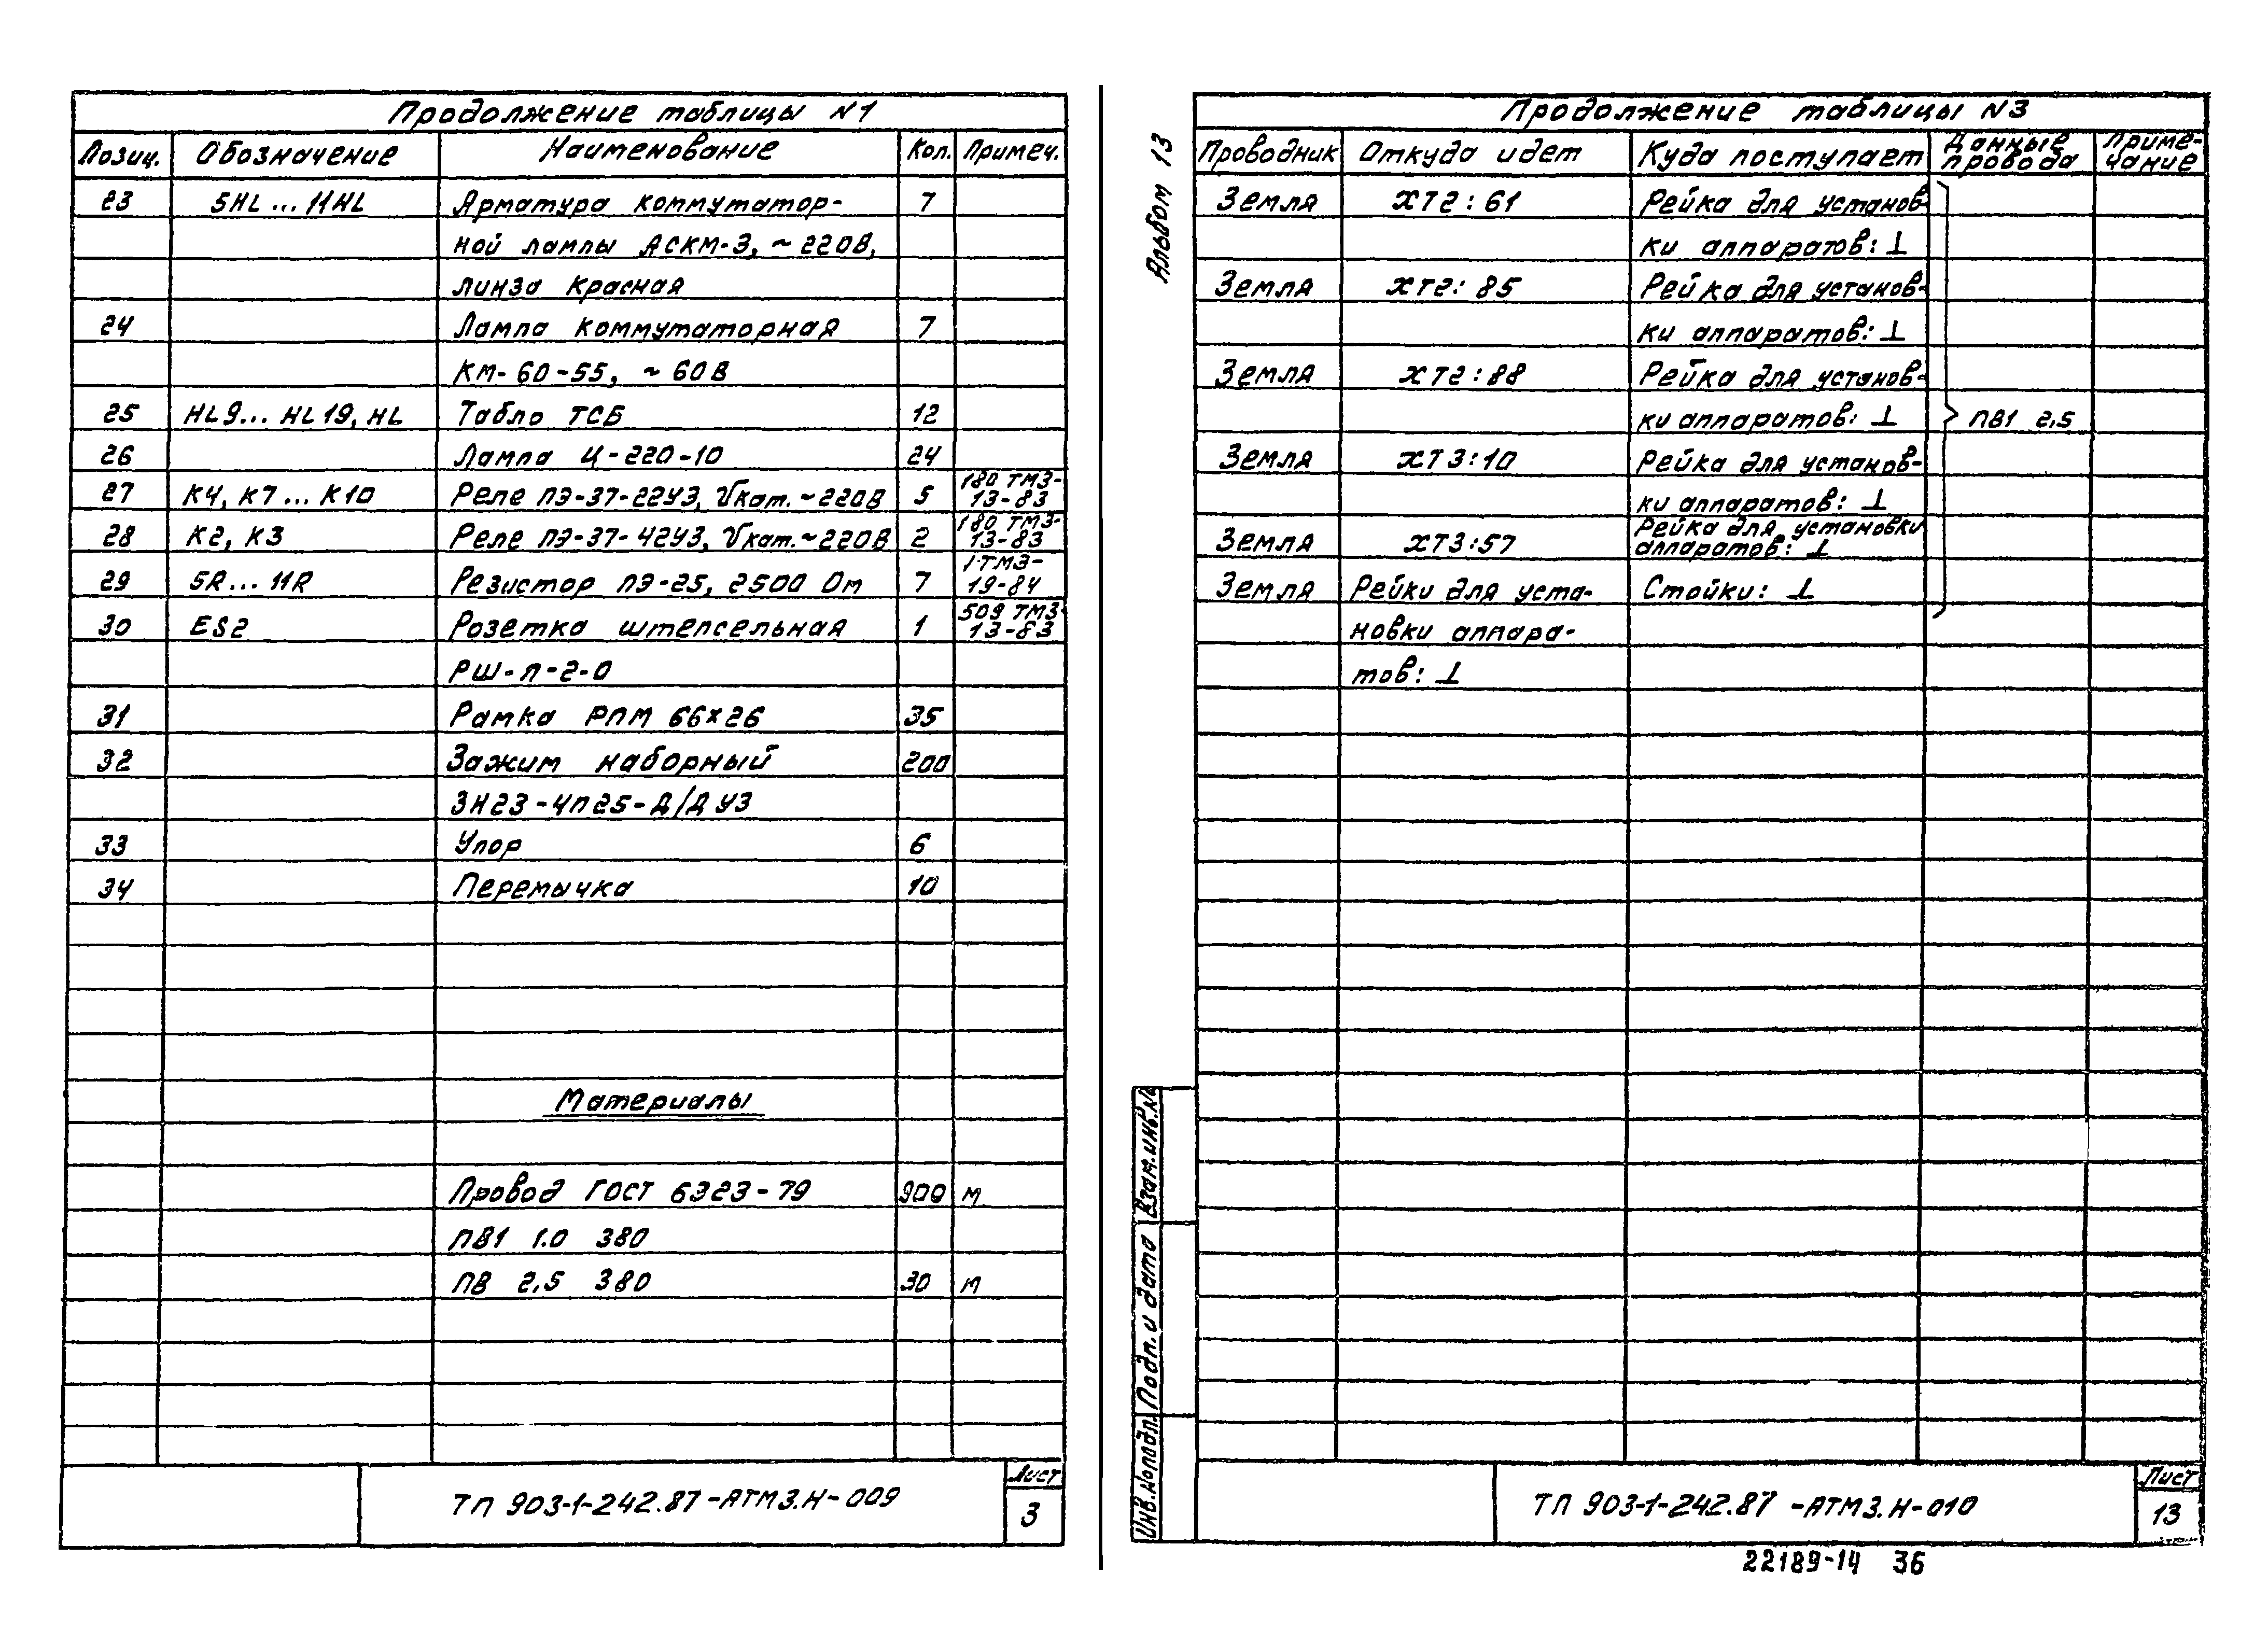 Продолжение таблицы N1
Позиц. Обозначение Наименование Кол. Примеч.
23 5HL ... 11HL Арматура коммутатор- 7
ной лампы АСКМ-3, ~220В,
линза красная
24 Лампа коммутаторная 7
КМ-60-55, ~60В
25 HL9... HL19, HL Табло ТСБ 12
26 Лампа Ц-220-10 24
27 К4, К7 ... К10 Реле ПЭ-37-22У3, Uкат.~220В 5 180 ТМ3-
13-83
28 К2, К3 Реле ПЭ-37-42У3, Uкат.~220В 2 180 ТМ3-
13-83
29 5R ... 11R Резистор ПЭ-25, 2500 Ом 7 1ТМ3-
19-84
30 ES2 Розетка штепсельная 1 509 ТМ3-
13-83
РШ-п-2-0
31 Рамка РПМ 66×26 35
32 Зажим наборный 200
ЗН23-4П25-Д/Д У3
33 Упор 6
34 Перемычка 10
Материалы
Провод ГОСТ 6323-79 900 м
ПВ1 1.0 380
ПВ 2,5 380 30 м
Лист
ТП 903-1-242.87-АТМ3.Н-009
3
Альбом 13
Продолжение таблицы N3
Проводник Откуда идет Куда поступает Данные провода Приме-
чание
Земля ХТ2:61 Рейка для установ-
ки аппаратов: ⊥
Земля ХТ2:85 Рейка для установ-
ки аппаратов: ⊥
Земля ХТ2:88 Рейка для установ-
ки аппаратов: ⊥ ПВ1 2,5
Земля ХТ3:10 Рейка для установ-
ки аппаратов: ⊥
Земля ХТ3:57 Рейка для установки
аппаратов: ⊥
Земля Рейки для уста- Стойки: ⊥
новки аппара-
тов: ⊥
Взам.инв.№
Подп. и дата
Инв.№подл.
Лист
ТП 903-1-242.87-АТМ3.Н-010
13
22189-14 36